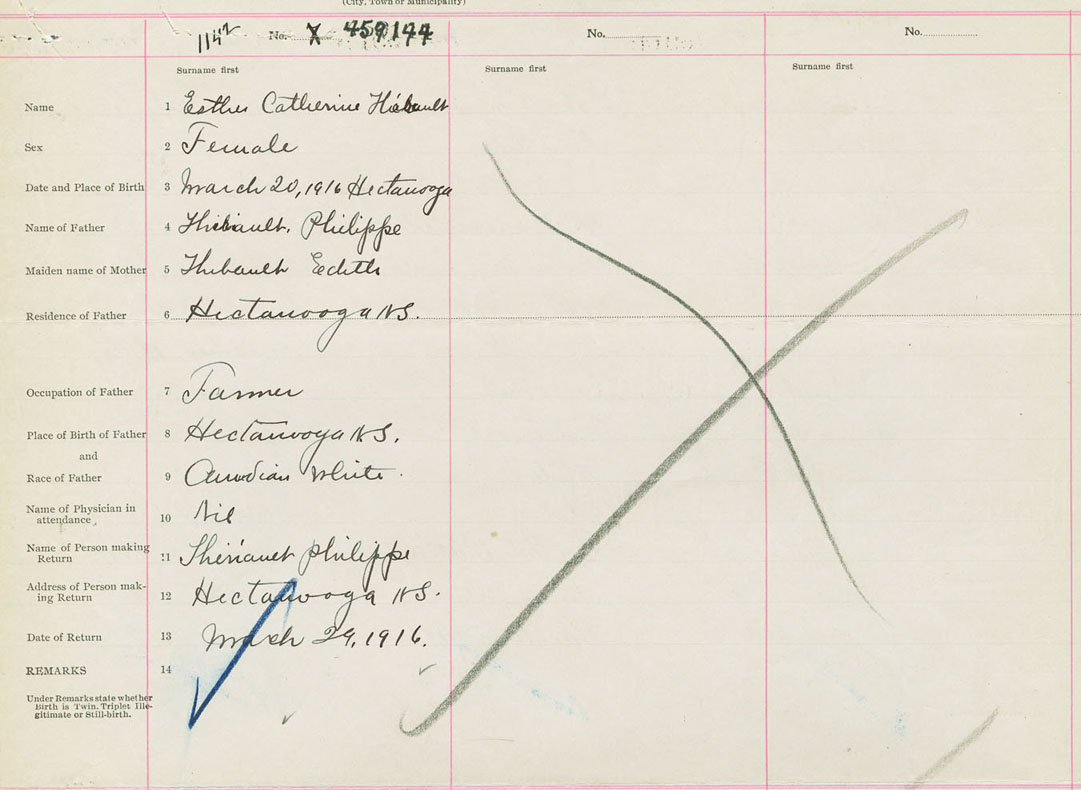 (City, Town or Municipality)
11 No. X 459144 No. No.
Surname first Surname first Surname first
Name 1 Esther Catherine
Sex 2 Female
Date and Place of Birth 3 March 20, 1916 Hectanooga
Name of Father 4 Philippe
Maiden name of Mother 5 Thibault Edith
Residence of Father 6 Hectanooga N.S.
Occupation of Father 7 Farmer
Place of Birth of Father 8 Hectanooga N.S.
and
Race of Father 9 Canadian White.
Name of Physician in
attendance, 10 Nil
Name of Person making
Return 11 Theriault Philippe
Address of Person mak-
ing Return 12 Hectanooga N.S.
Date of Return 13 March 29, 1916.
REMARKS 14
Under Remarks state whether
Birth is Twin. Triplet Ille-
gitimate or Still-birth.